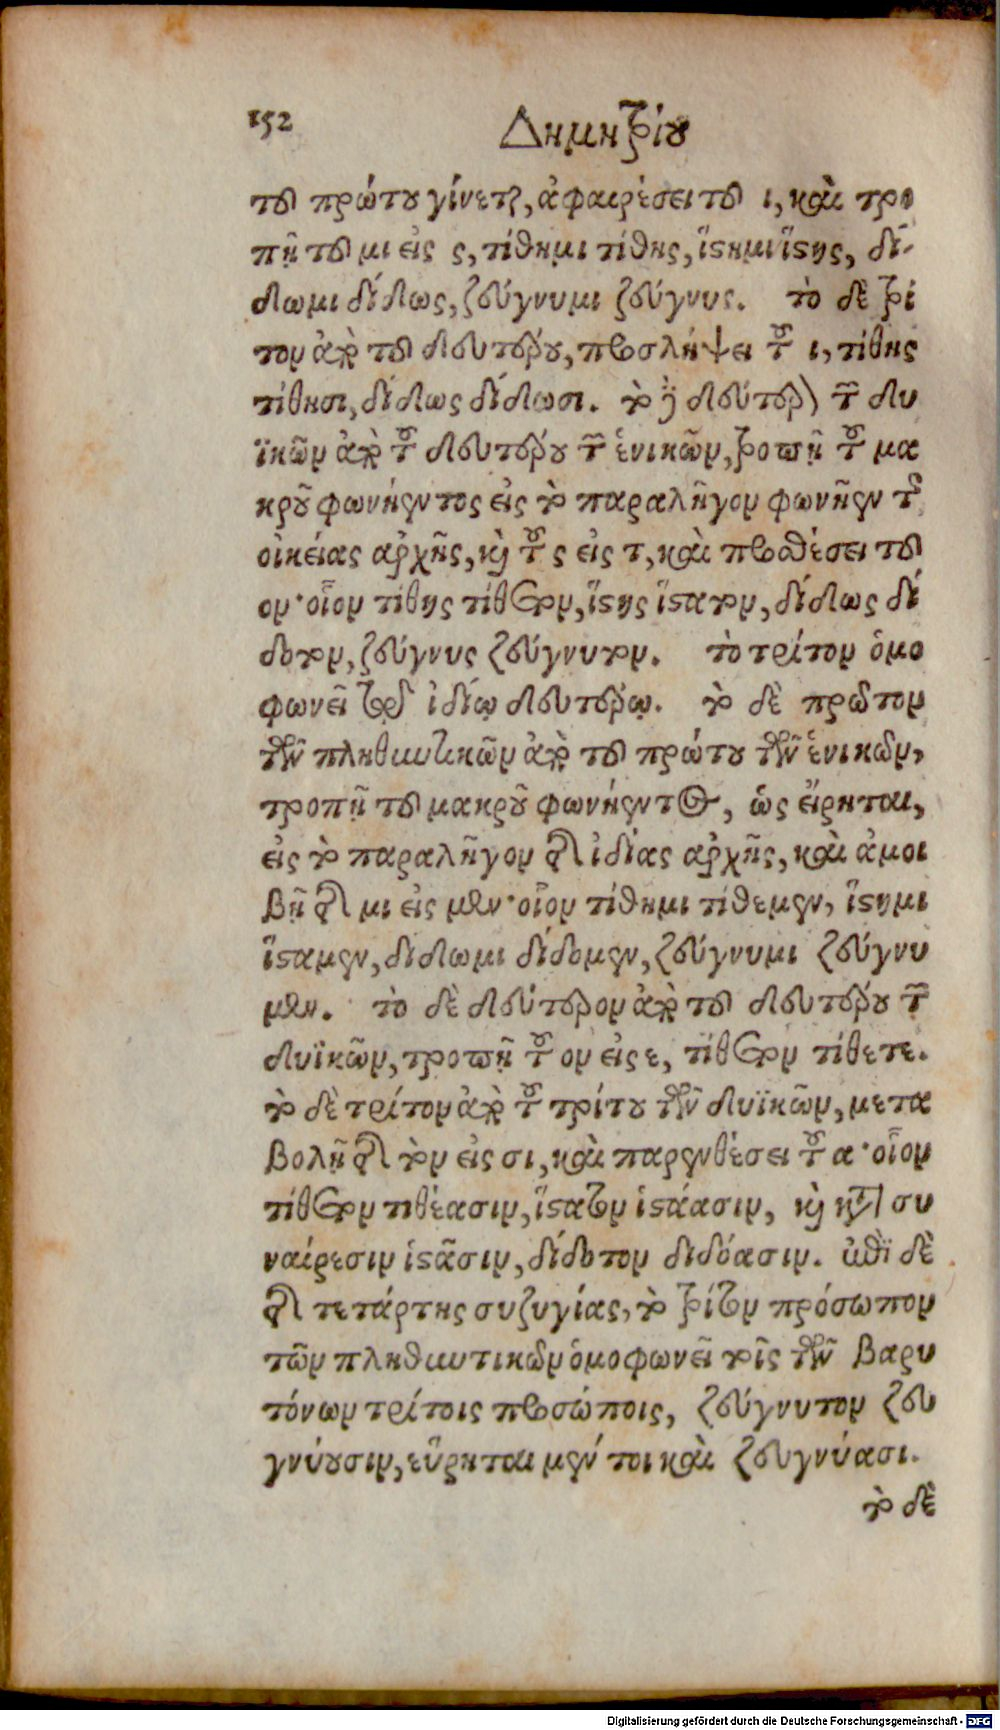 152 Δημητρίου
τοῦ πρώτου γίνεται, ἀφαιρέσει τοῦ ι, καὶ τρο
πῇ τοῦ μι εἰς ς, τίθημι τίθης, ἵστημι ἵστης, δί-
δωμι δίδως, ζεύγνυμι ζεύγνυς. τὸ δὲ τρί
τον ἀπὸ τοῦ δευτέρου, προσλήψει τοῦ ι, τίθης
τίθησι, δίδως δίδωσι. τὸ δὲ δεύτερον τῶν δυ
ϊκῶν ἀπὸ τοῦ δευτέρου τῶν ἑνικῶν, τροπῇ τοῦ μα
κροῦ φωνήεντος εἰς τὸ παραλῆγον φωνῆεν τῆς
οἰκείας ἀρχῆς, καὶ τοῦ ς εἰς τ, καὶ προσθέσει τοῦ
ον· οἷον τίθης τίθετον, ἵστης ἵστατον, δίδως δί
δοτον, ζεύγνυς ζεύγνυτον. τὸ τρίτον ὁμο
φωνεῖ τῷ ἰδίῳ δευτέρῳ. τὸ δὲ πρῶτον
τῶν πληθυντικῶν ἀπὸ τοῦ πρώτου τῶν ἑνικῶν,
τροπῇ τοῦ μακροῦ φωνήεντος, ὡς εἴρηται,
εἰς τὸ παραλῆγον τῆς ἰδίας ἀρχῆς, καὶ ἀμοι
βῇ τῆς μι εἰς μεν· οἷον τίθημι τίθεμεν, ἵστημι
ἵσταμεν, δίδωμι δίδομεν, ζεύγνυμι ζεύγνυ
μεν. τὸ δὲ δεύτερον ἀπὸ τοῦ δευτέρου τῶν
δυϊκῶν, τροπῇ τοῦ ον εἰς ε, τίθετον τίθετε.
τὸ δὲ τρίτον ἀπὸ τοῦ τρίτου τῶν δυϊκῶν, μετα
βολῇ τῆς τον εἰς σι, καὶ παρενθέσει τοῦ α· οἷον
τίθετον τιθέασιν, ἵστατον ἱστάασιν, καὶ κατὰ συ
ναίρεσιν ἱστᾶσιν, δίδοτον διδόασιν. ἐπὶ δὲ
τῆς τετάρτης συζυγίας, τὸ τρίτον πρόσωπον
τῶν πληθυντικῶν ὁμοφωνεῖ τοῖς τῶν βαρυ
τόνων τρίτοις προσώποις, ζεύγνυτον ζευ
γνύουσιν, εὕρηται μέντοι καὶ ζευγνύασι.
τὸ δὲ
Digitalisierung gefördert durch die Deutsche Forschungsgemeinschaft - DFG